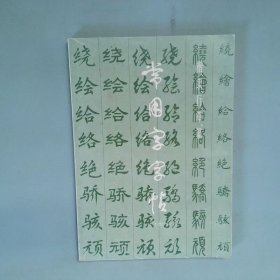 常用字字帖
绕 绕 绕 绕 繞 繞
绘 绘 绘 绘 繪 繪
给 给 给 给 給 給
络 络 络 络 絡 絡
绝 绝 绝 绝 絕 絕
骄 骄 骄 骄 驕 驕
骇 骇 骇 骇 駭 駭
顽 顽 顽 顽 頑 頑